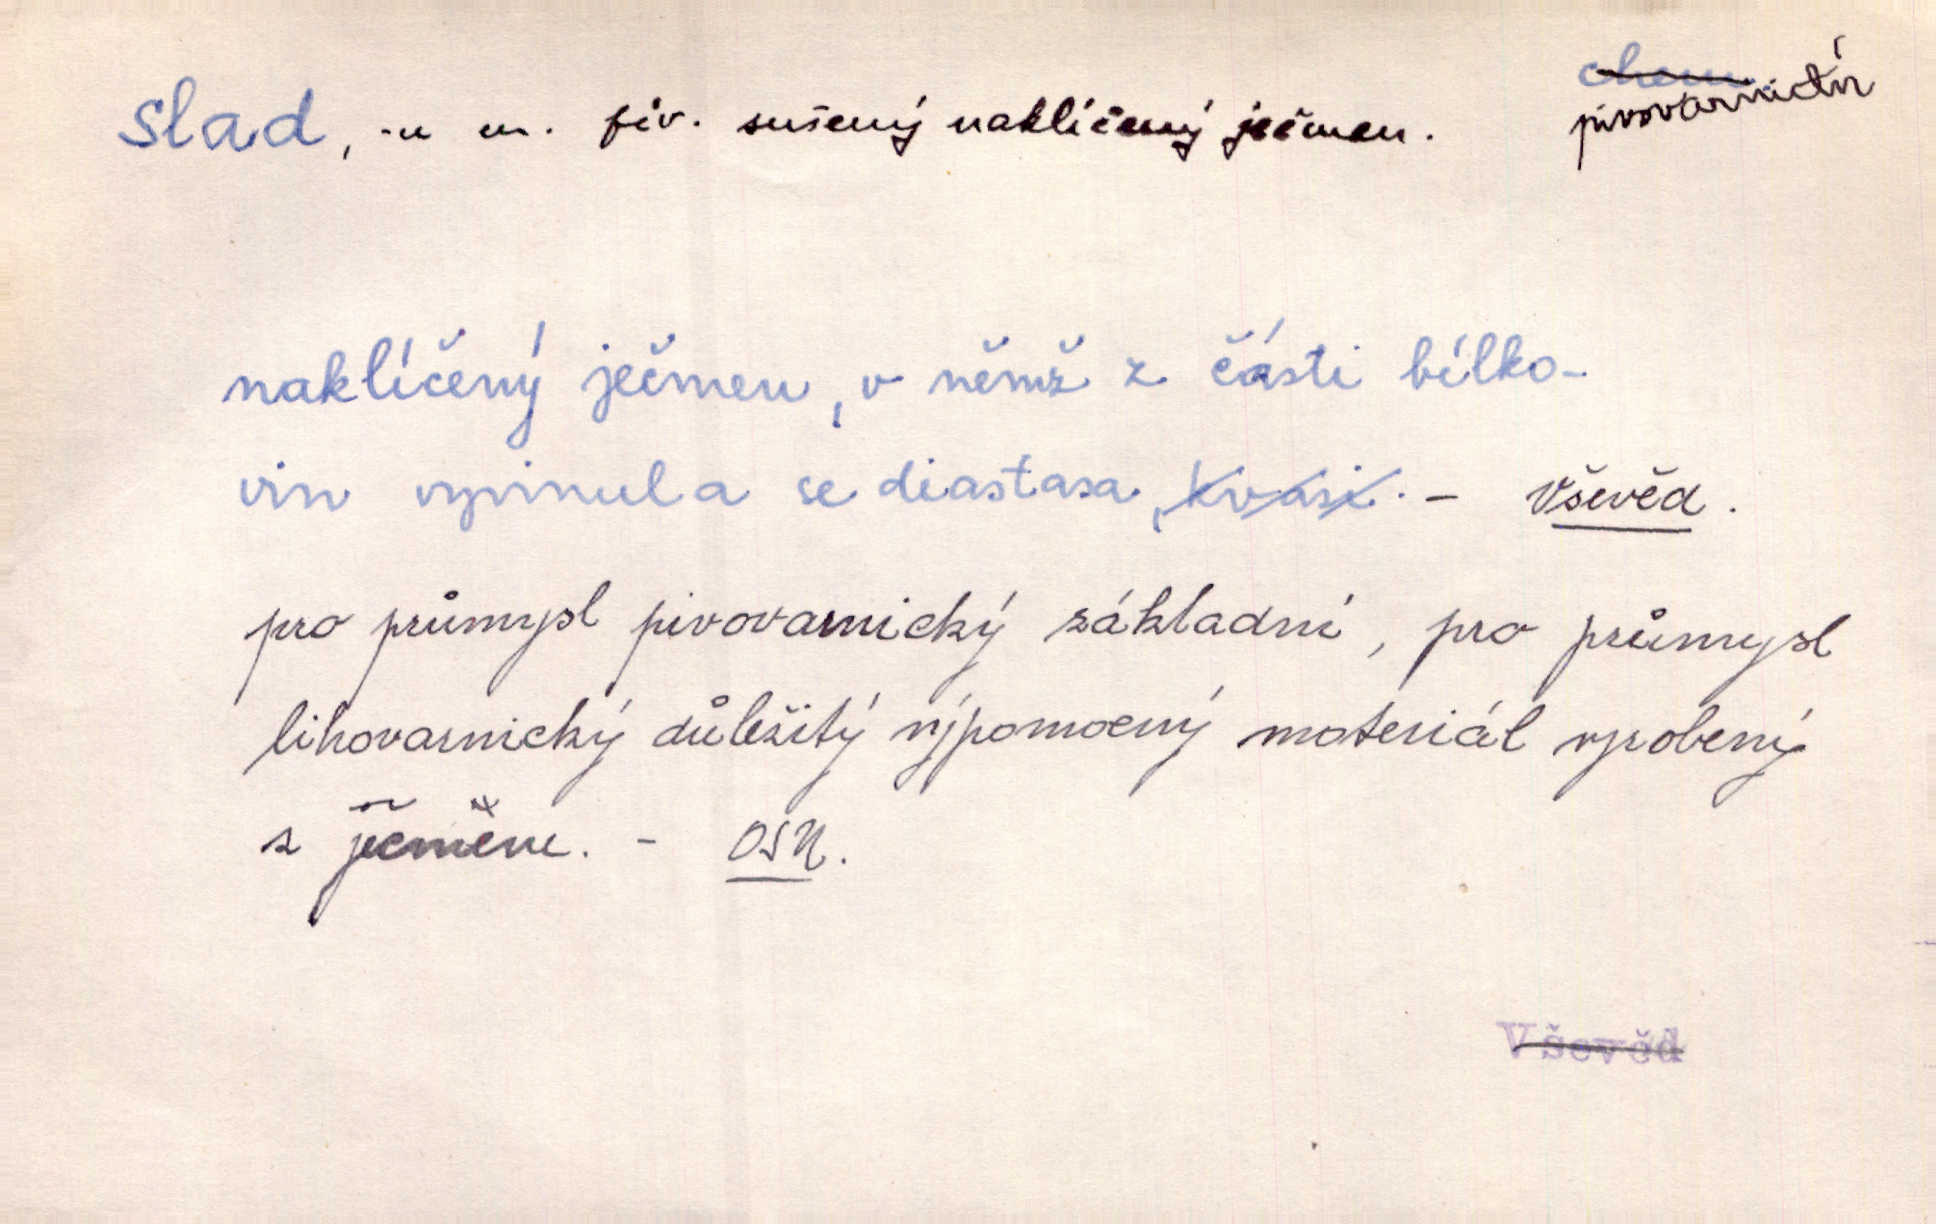 slad, -u m. piv. sušený naklíčený ječmen.
chem.
pivovarnictví
naklíčený ječmen, v němž z části bílko-
vin vyvinula se diastasa, kvasi. – Vševěd.
pro průmysl pivovarnický základní, pro průmysl
lihovarnický důležitý výpomocný materiál vyrobený
z ječmene. – OSN.
Vševěd